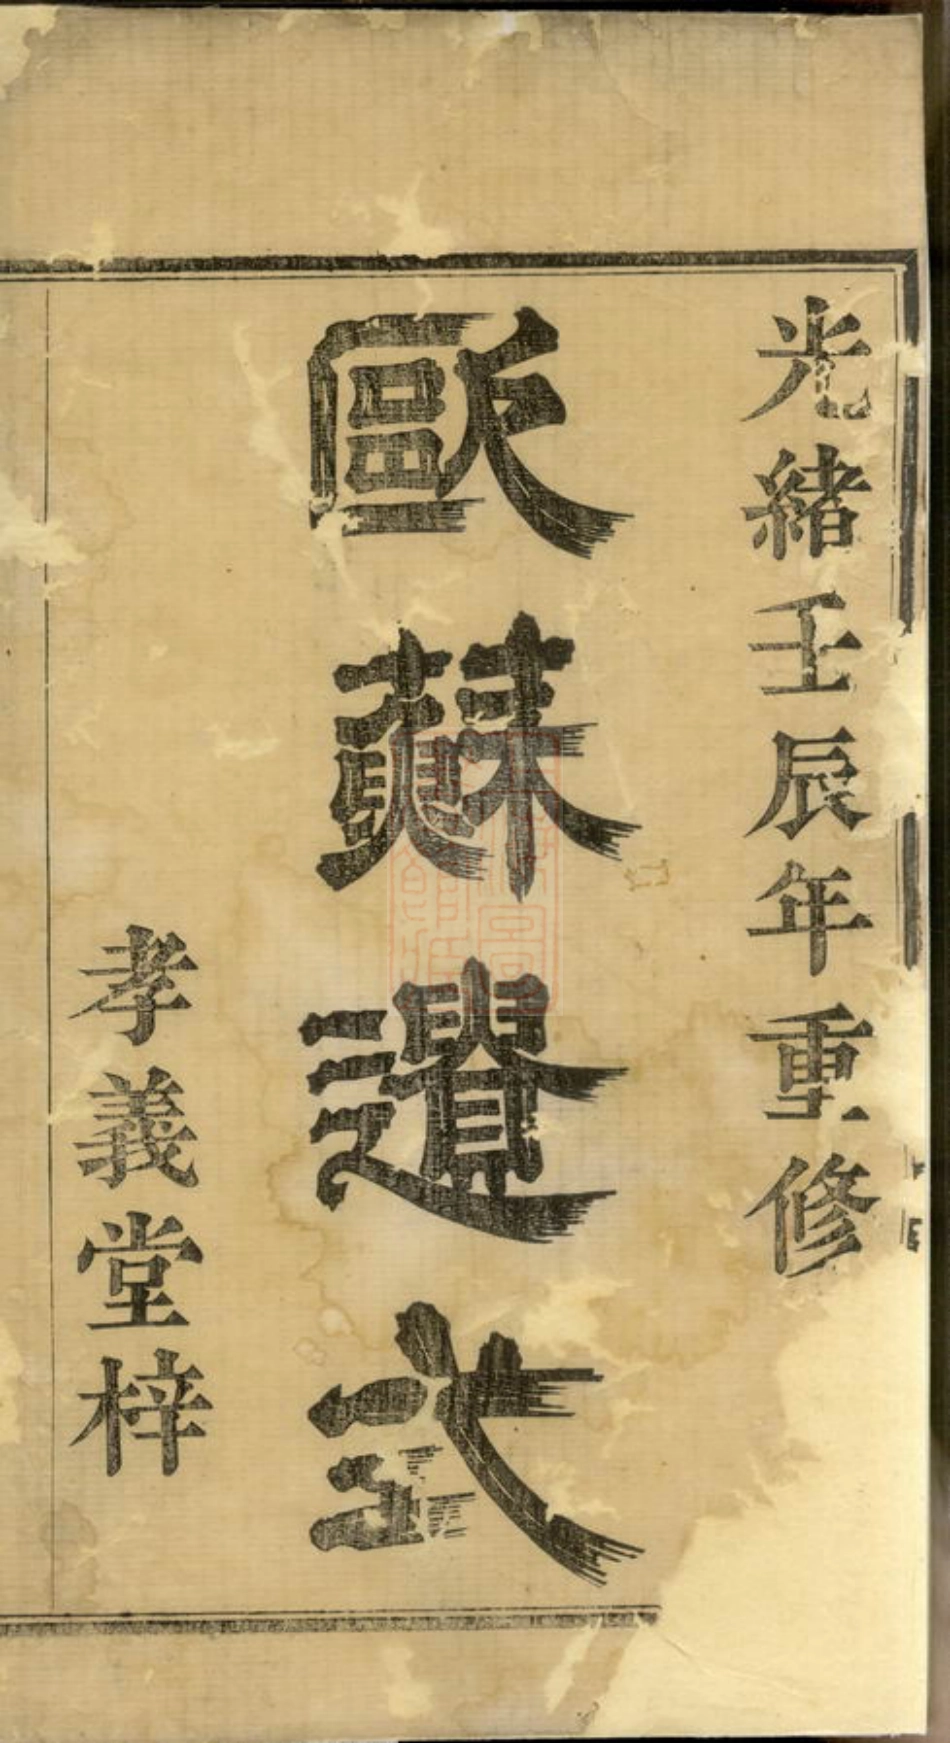 光緒壬辰年重修
歐蘇遺式
孝義堂梓